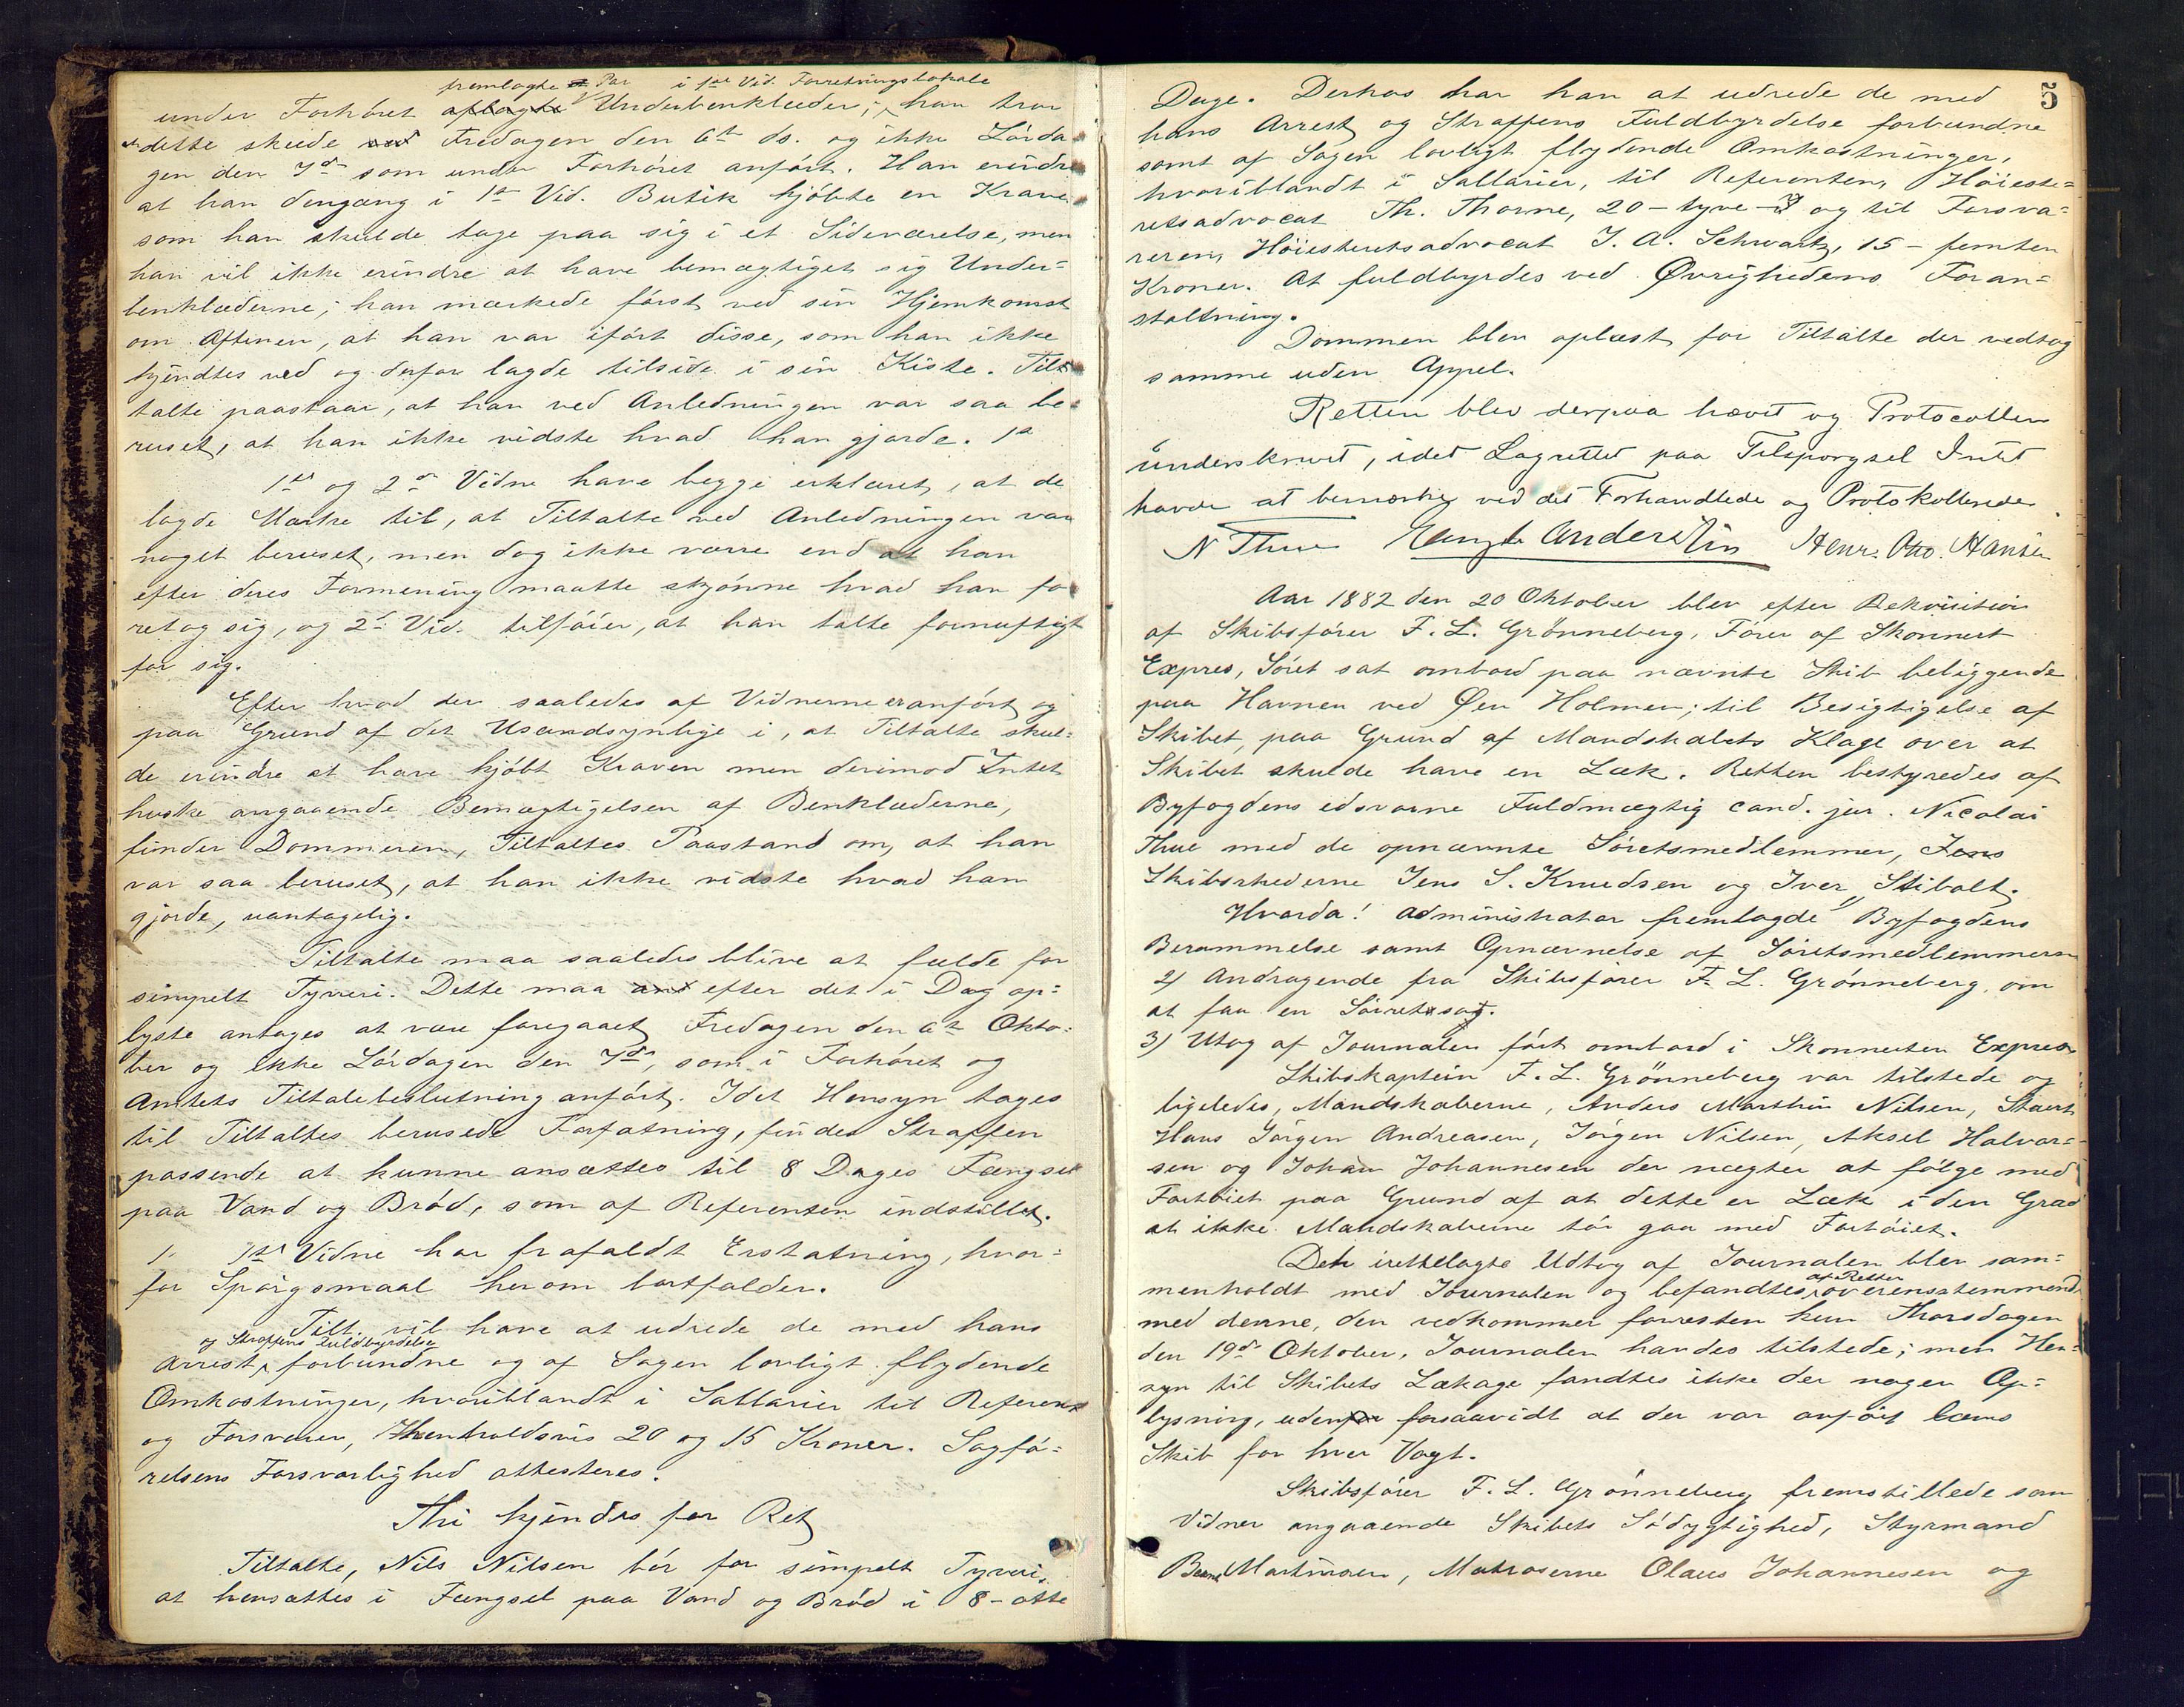 fremlagte Par i 1ste Vid. Forretningslokale
under Forhöret aflagte Underbenklæder; han tror
at dette skede ved Fredagen den 6te ds. og ikke Lörda-
gen den 7de som under Forhöret anfört. Han erindre
at han dengang i 1ste Vid. Butik kjöbte en Krave
som han skulde tage paa sig i et Sideværelse, men
han vil ikke erindre at have bemægtiget sig Under-
benklæderne; han mærkede först ved sin Hjemkomst
om Aftenen, at han var ifört disse, som han ikke
kjendtes ved og derfor lagde tilside i sin Kiste. Til-
talte paastaar, at han ved Anledningen var saa be-
ruset, at han ikke vidste hvad han gjorde. 1st
1ste og 2det Vidne have begge erklæret, at de
lagde Mærke til, at Tiltalte ved Anledningen var
noget beruset, men dog ikke værre end at han
efter deres Formening maatte skjönne hvad han fo
retog sig, og 2det Vid. tilföier, at han talte fornuftigt
for sig.
Efter hvad der saaledes af Vidnerne er anfört og
paa Grund af det Usandsynlige i, at Tiltalte skul-
de erindre at have kjöbt Kraven men derimod Intet
huske angaaende Bemægtigelsen af Benklæderne,
finder Dommeren, Tiltaltes Paastand om, at han
var saa beruset, at han ikke vidste hvad han
gjorde, uantagelig.
Tiltalte maa saaledes blive at fælde for
simpelt Tyveri. Dette maa ant efter det i Dag op-
lyste antages at være foregaaet Fredagen den 6te Okto-
ber og ikke Lördagen den 7de, som i Forhöret og
Amtets Tiltalebeslutning anfört. Idet Hensyn tages
til Tiltaltes berusede Forfatning, findes Straffen
passende at kunne ansættes til 8 Dages Fængsel
paa Vand og Bröd, som af Referenten indstillet.
1ste Vidne har frafaldt Erstatning, hvor-
for Spörgsmaal herom bortfalder.
Tilt. vil have at udrede de med hans
og Straffens Fuldbyrdelse
Arrest forbundne og af Sagen lovligt flydende
Omkostninger, hvoriblandt i Sallarier til Referent
og Forsvarer, Henholdsvis 20 og 15 Kroner. Sagfö-
relsens Forsvarlighed attesteres.
Thi kjendes for Ret
Tiltalte, Nils Nilsen bör for simpelt Tyveri
at hensættes i Fængsel paa Vand og Bröd i 8 - otte
5
Dage. Derhos har han at udrede de med
hans Arrest og Straffens Fuldbyrdelse forbundne
samt af Sagen lovligt flydende Omkostninger,
hvoriblandt i Sallarier, til Referenten, Höieste-
retsadvocat Th. Thorne, 20 - tyve - og til Forsva-
reren, Höiesteretsadvocat J. A. Schwartz, 15 - femten
Kroner. At fuldbyrdes ved Øvrighedens Foran-
staltning.
Dommen blev oplæst for Tiltalte der vedtog
samme uden Appel.
Retten blev derpaa hævet og Protocollen
underskrevet, idet Lagrettet paa Tilspørgsel Intet
havde at bemærke ved det Forhandlede og Protokollerede.
N Thue Andersin Henr. Otto. Hansen
Aar 1882 den 20 Oktober blev efter Rekvisition
af Skibsförer F. L. Grönneberg, Förer af Skonnert
Expres, Söret sat ombord paa nævnte Skib beliggende
paa Havnen ved Øen Holmen; til Besigtigelse af
Skibet, paa Grund af Mandskabets Klage over at
Skibet skulde have en Læk. Retten bestyredes af
Byfogdens edsvorne Fuldmægtig cand. jur. Nicolai
Thue med de opnævnte Söretsmedlemmer, Jens
Skibsrhederne Jens S. Knudsen og Iver Stibolt.
Hvorda! Administrator fremlagde 1) Byfogdens
Berammelse samt Opnævnelse af Söretsmedlemmerne
2) Andragende fra Skibsförer F. L. Grönneberg om
at faa en Söret sat.
3) Utog af Journalen fört ombord i Skonnerten Expres
Skibskaptein F. L. Grönneberg var tilstede og
ligeledes, Mandskaberne, Anders Marthin Nilsen, Stuert
Hans Jörgen Andreasen, Jörgen Nilsen, Aksel Halvor-
sen og Johan Johannesen der nægter at fölge med
Fartöiet paa Grund af at dette er Læk i den Grad
at ikke Mandskaberne tör gaa med Fartöiet.
Det irettelagte Udtog af Journalen blev sam-
menholdt med Journalen og befandtes af Retten overensstemmende
med denne, den vedkommer forresten kun Thorsdagen
den 19de Oktober, Journalen havdes tilstede; men Hen-
syn til Skibets Lækage fandtes ikke der nogen Op-
lysning, uden for forsaavidt at der var anfört læns
Skib for hver Vagt.
Skibsförer F. L. Grönneberg fremstillede som
Vidner angaaende Skibets Södygtighed, Styrmand
Martinsen, Matroserne Olaus Johannesen og